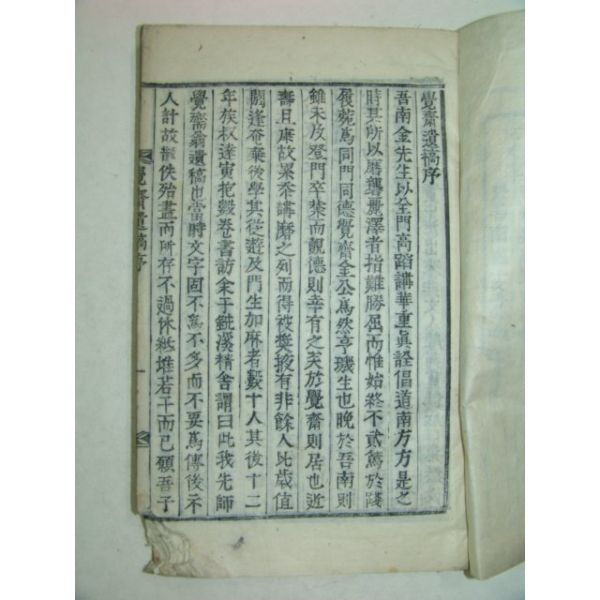 覺齋遺稿序
吾南金先生以全門高蹈講華重眞詮倡道南方方是之
時其所以磨礱麗澤者指難勝屈而惟始終不貳篤於踐
履菀爲同門同德覺齋金公爲然亨璣生也晚於吾南則
雖未及登門卒業而覿德則幸有之矣於覺齋則居也近
壽且康故累忝講磨之列而得被奬掖有非餘人比歲值
閼逢奄棄後學其從遊及門生加麻者數十人其後十二
年族叔達寅抱數卷書訪余于銑溪精舍謂曰此我先師
覺齋翁遺稿也當時文字固不爲不多而不要爲傳後不
人計故散佚殆盡而所存不過休紙堆若干而已願吾子
覺齋遺稿序
一